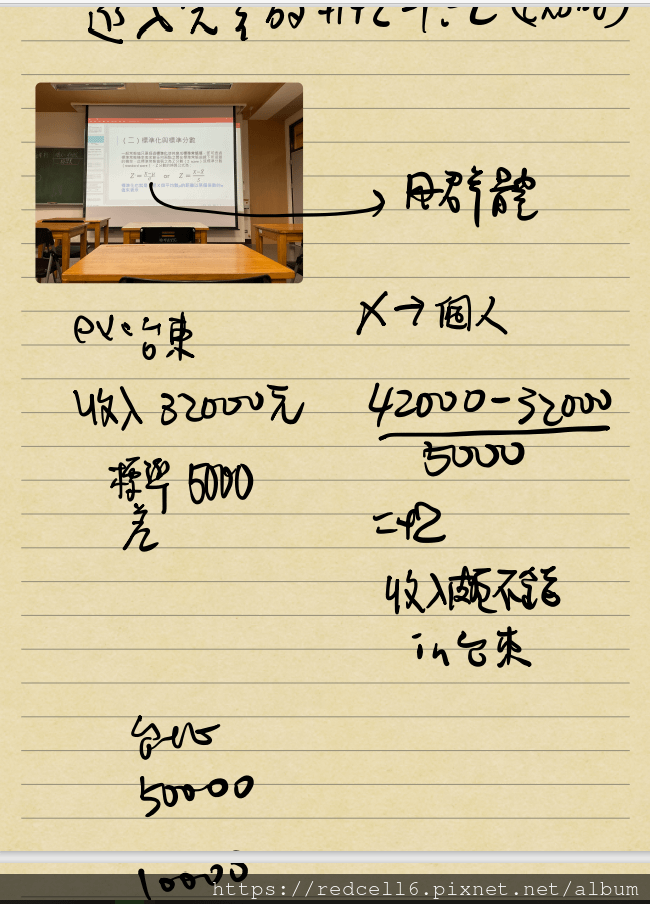 (二)標準化與標準分數
Z = (X-μ)/σ or Z = (X-X̄)/S
母群體
ex:台東
X→個人
收入 32000元
42000-32000
5000
標準 5000
差
=+2
收入頗不錯
in台東
台北
50000
10000
https://redcell6.pixnet.net/album